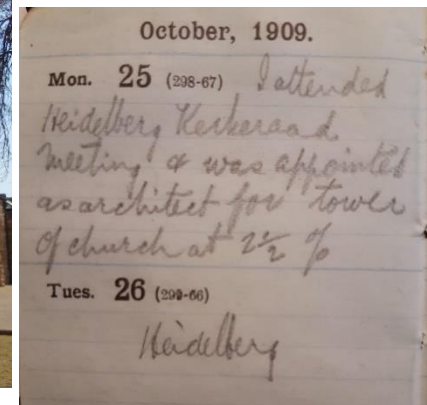 October, 1909.
Mon. 25 (298-67) I attended
Heidelberg Kerkeraad
meeting & was appointed
as architect for tower
of church at 2½ %
Tues. 26 (299-66)
Heidelberg